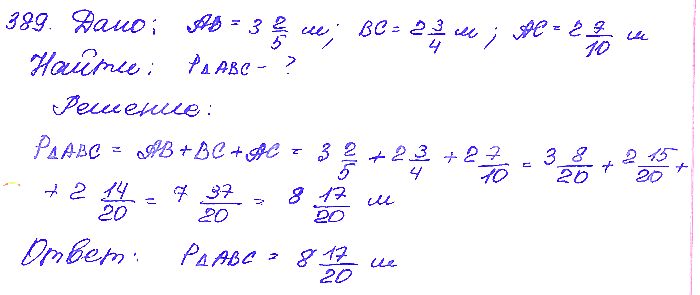 389. Дано: AB = 3 2/5 м; BC = 2 3/4 м; AC = 2 7/10 м
Найти: P△ABC - ?
Решение:
P△ABC = AB + BC + AC = 3 2/5 + 2 3/4 + 2 7/10 = 3 8/20 + 2 15/20 +
+ 2 14/20 = 7 37/20 = 8 17/20 м
Ответ: P△ABC = 8 17/20 м